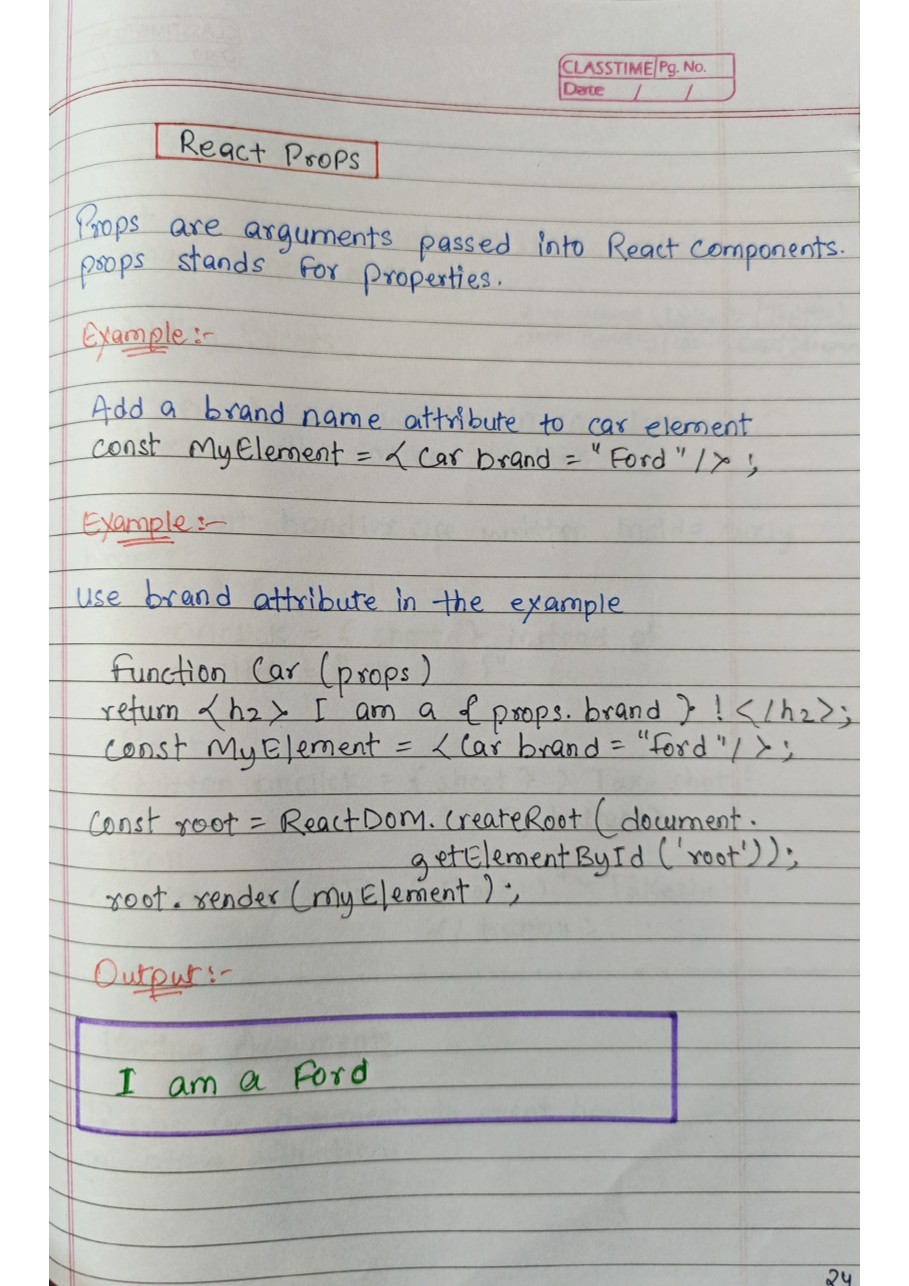 CLASSTIME Pg. No.
Date / /
React Props
Props are arguments passed into React Components.
props stands for properties.
Example:-
Add a brand name attribute to car element
const MyElement = < Car brand = "Ford" /> ;
Example:-
use brand attribute in the example
function Car (props)
return <h2> I am a { props. brand } ! </h2>;
const MyElement = < Car brand = "ford" / >;
const root = ReactDOM. createRoot ( document.
getElementById ('root'));
root. render ( myElement ) ;
Output:-
I am a Ford
24